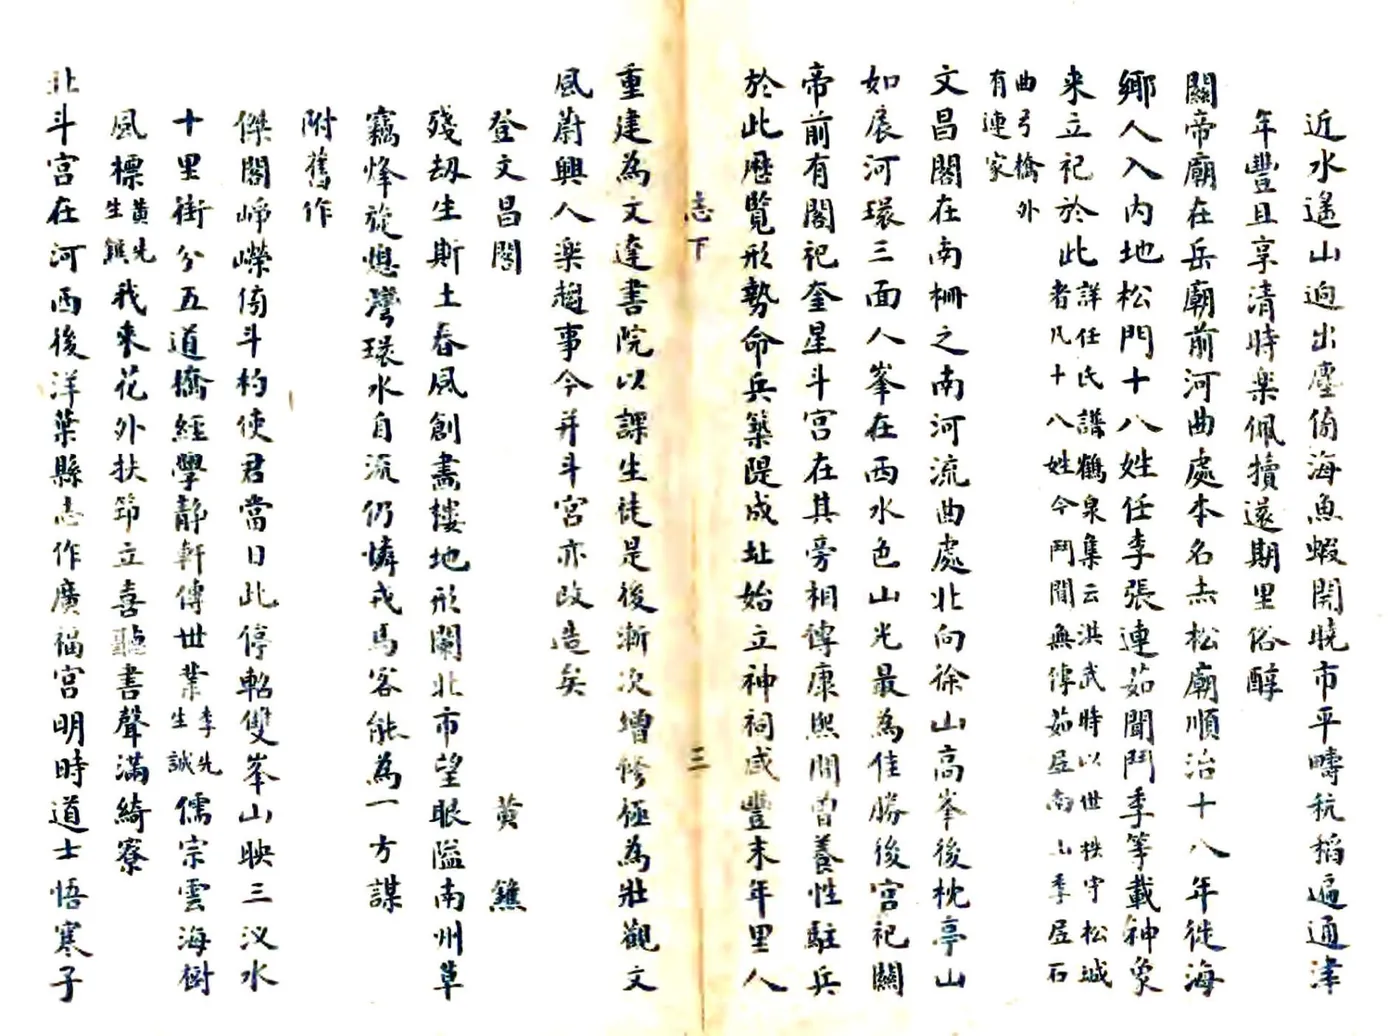 近水遙山逈出塵倚海魚蝦開曉市平疇秔稻遍通津
年豐且享清時楽佩犢還期里俗醇
關帝廟在岳廟前河曲處本名赤松廟順治十八年徙海
鄉人入内地松門十八姓任李張連茹聞鬥季等載神象
来立祀於此詳任氏譜鶴泉集云洪武時以世秩守松城
者凡十八姓今鬥聞無傳茹居南山季居石
曲弓橋外
有連家
文昌閣在南柵之南河流曲處北向徐山高峯後枕亭山
如展河環三面人峯在西水色山光最為佳勝後宮祀關
帝前有閣祀奎星斗宮在其旁相傳康熙間曾養性駐兵
於此歷覽形勢命兵築隄成址始立神祠咸豐末年里人
志下
三
重建為文達書院以課生徒是後漸次增修極為壯觀文
風蔚興人楽趨事今并斗宮亦改造矣
登文昌閣 黄鐎
殘刼生斯土春風創畵樓地形闌北市望眼隘南州草
竊烽旋熄灣環水自流仍憐戎馬客能為一方謀
附舊作
傑閣崢嶸倚斗杓使君當日此停軺雙峯山映三汊水
十里街分五道橋經學靜軒傳世業李先生誠儒宗雲海樹
風標黄先生鐎我来花外扶筇立喜聽書聲滿綺寮
北斗宮在河西後洋葉縣志作廣福宮明時道士悟寒子